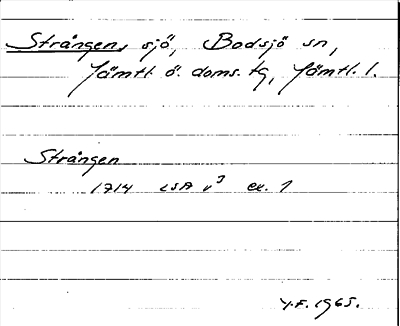 Strången, sjö, Bodsjö sn,
Jämtl. ö. doms. tg, Jämtl. l.
Strången
1714 LSA v³ ex. 1
Y.F. 1965.